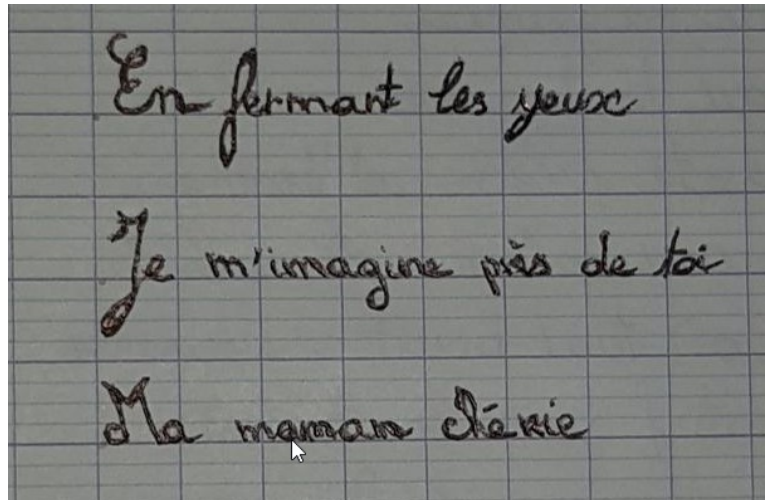 En fermant les yeux
Je m'imagine près de toi
Ma maman chérie